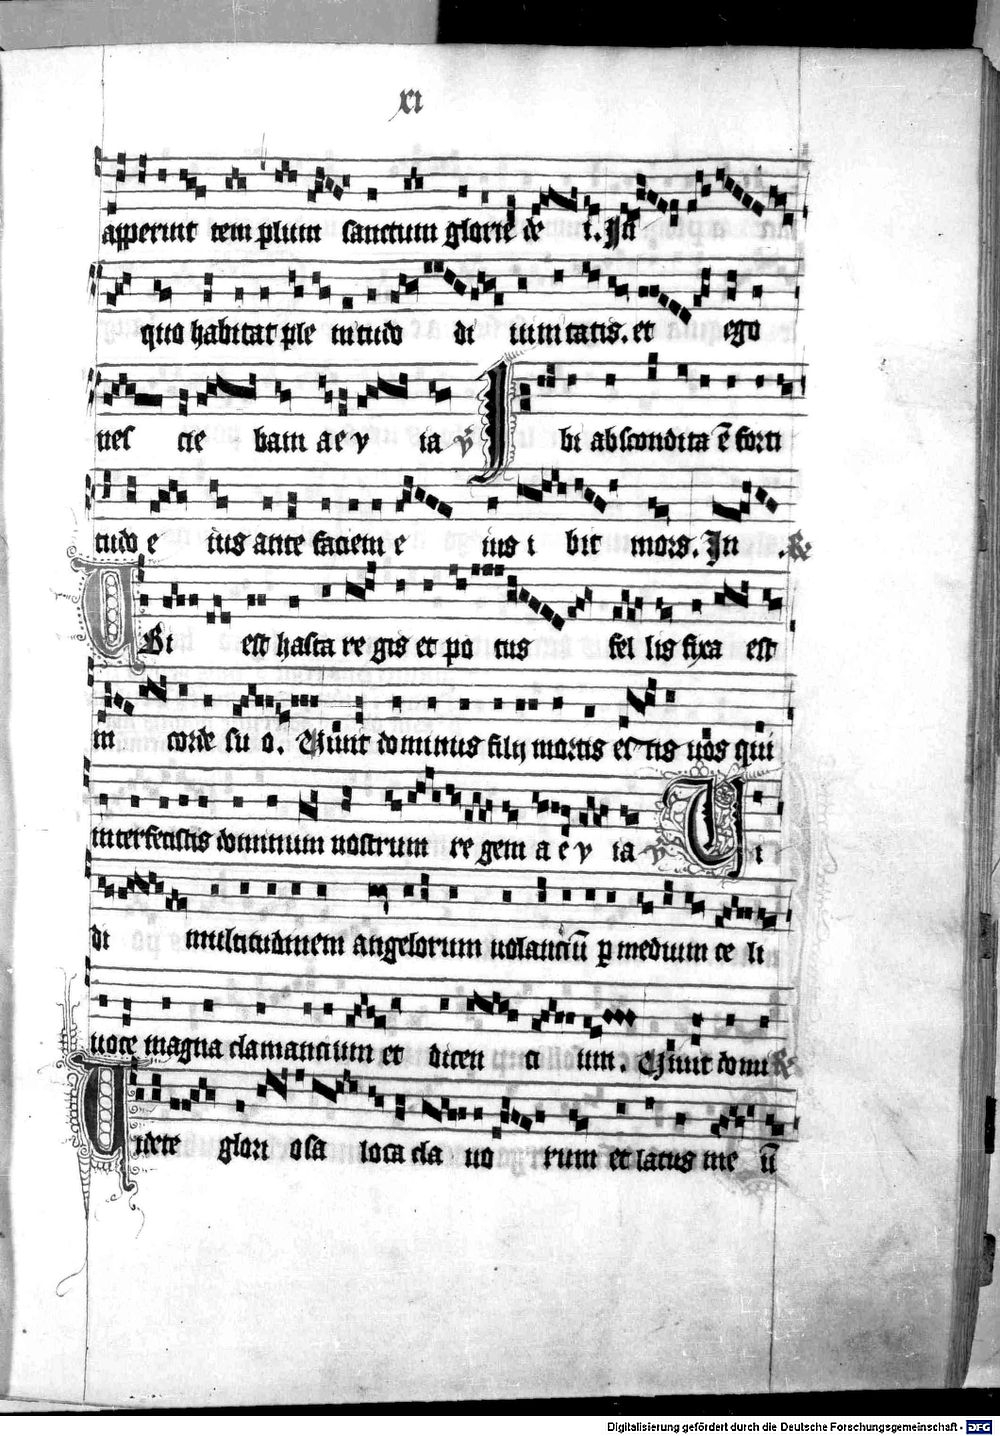 xi
apperiut tem plum sanctum glorie de i. In
quo habitat ple nitudo di uinitatis. et ego
nes cie bam a e v ia v̄ I bi abscondita ē forti
tudo e ius ante faciem e ius i bit mors. In
UBi est hasta re gis et po tus fel lis fixa est
in corde su o. Viuit dominus filij mortis es tis uos qui
interfecistis dominum nostrum re gem a e v ia v̄ Vi
di multitudinem angelorum uolanciū p medium ce li
uoce magna clamancium et dicen ci um. Viuit domi
Videte glori osa loca cla uo rum et latus me ū
Digitalisierung gefördert durch die Deutsche Forschungsgemeinschaft - DFG